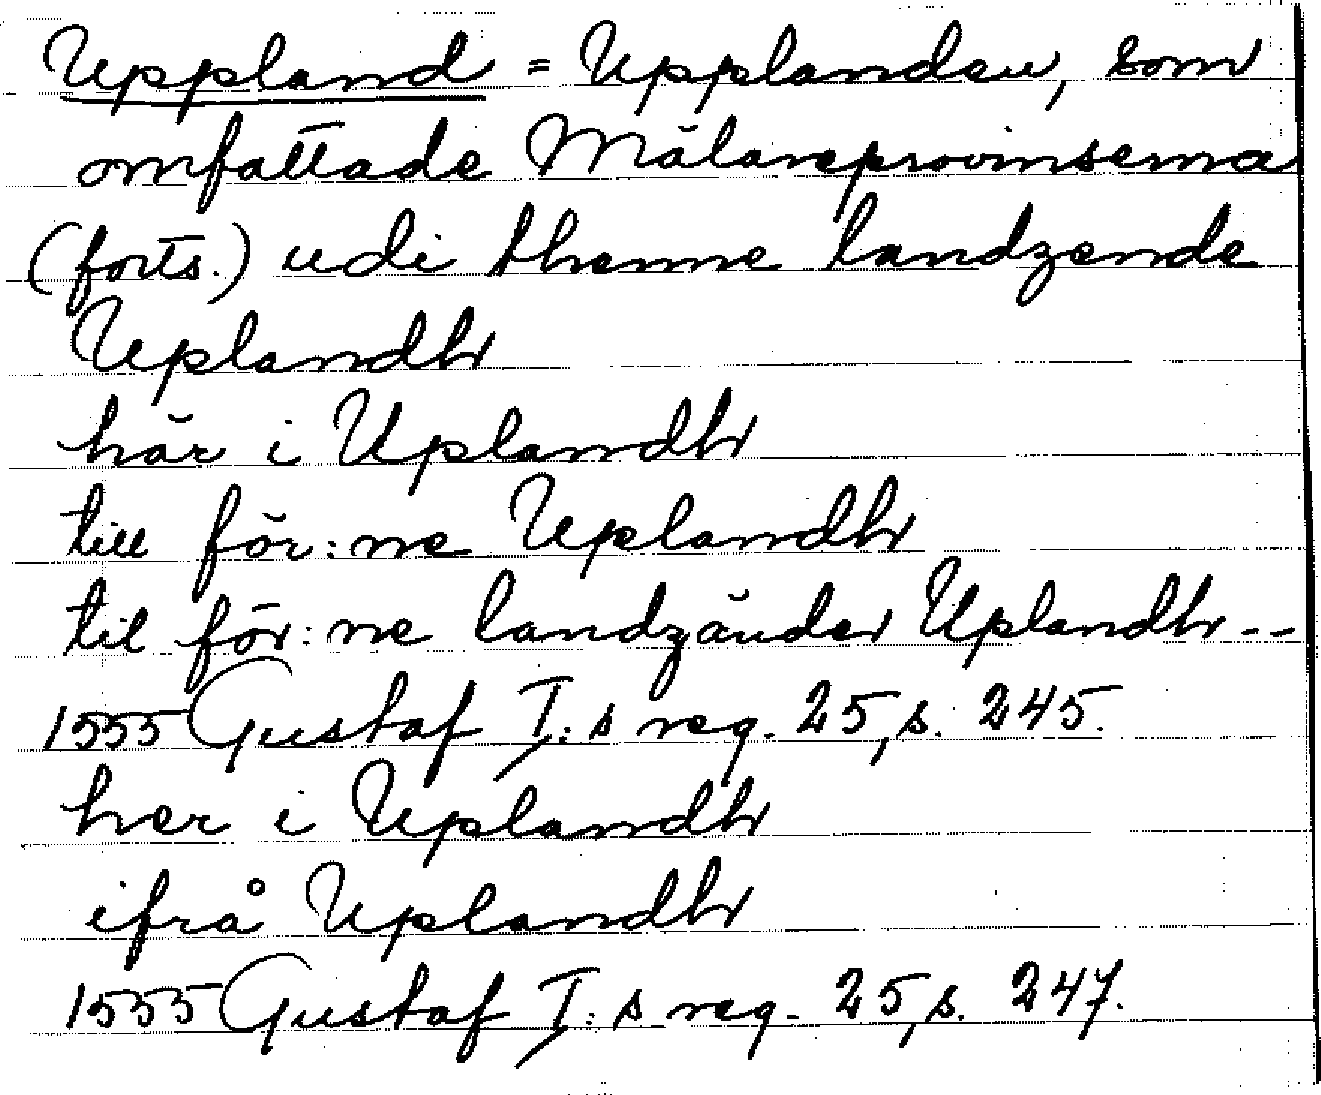 Uppland = Upplanden, som
omfattade Mälareprovinserna
(forts.) udi thenne landzende
Uplandh
här i Uplandh
till för:ne Uplandh
til för:ne landzänder Uplandh--
1555 Gustaf I:s reg. 25, s. 245.
her i Uplandh
ifrå Uplandh
1555 Gustaf I:s reg. 25, s. 247.